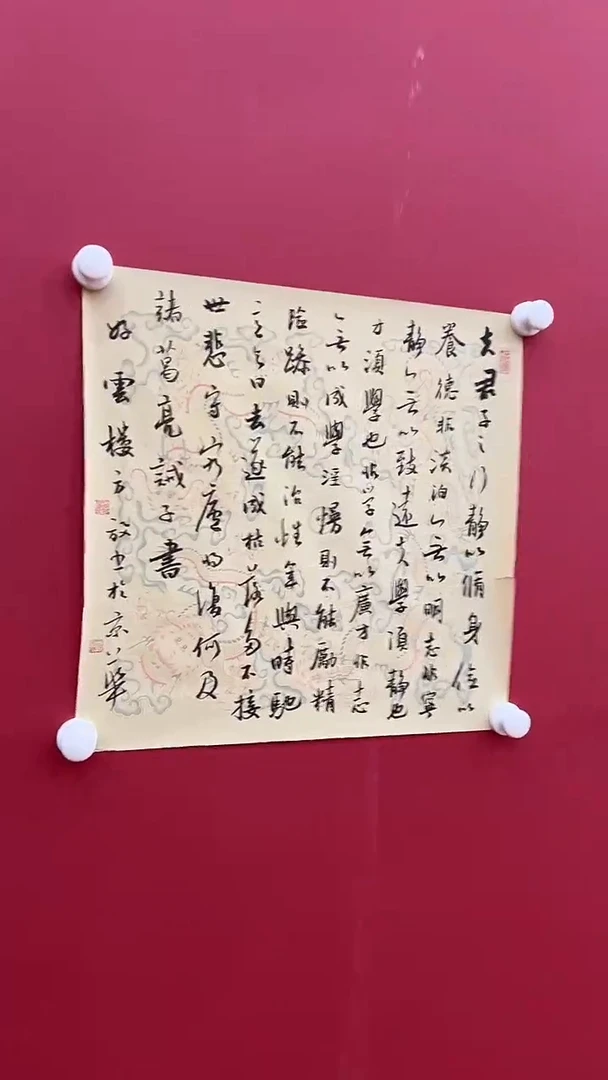 夫君子之行靜以脩身儉以
養德非淡泊無以明志非寧
靜無以致遠夫學須靜也
才須學也非學無以廣才非志
無以成學淫慢則不能勵精
險躁則不能治性年與時馳
意與日去遂成枯落多不接
世悲守窮廬將復何及
諸葛亮誡子書
雲樓方 書於京華